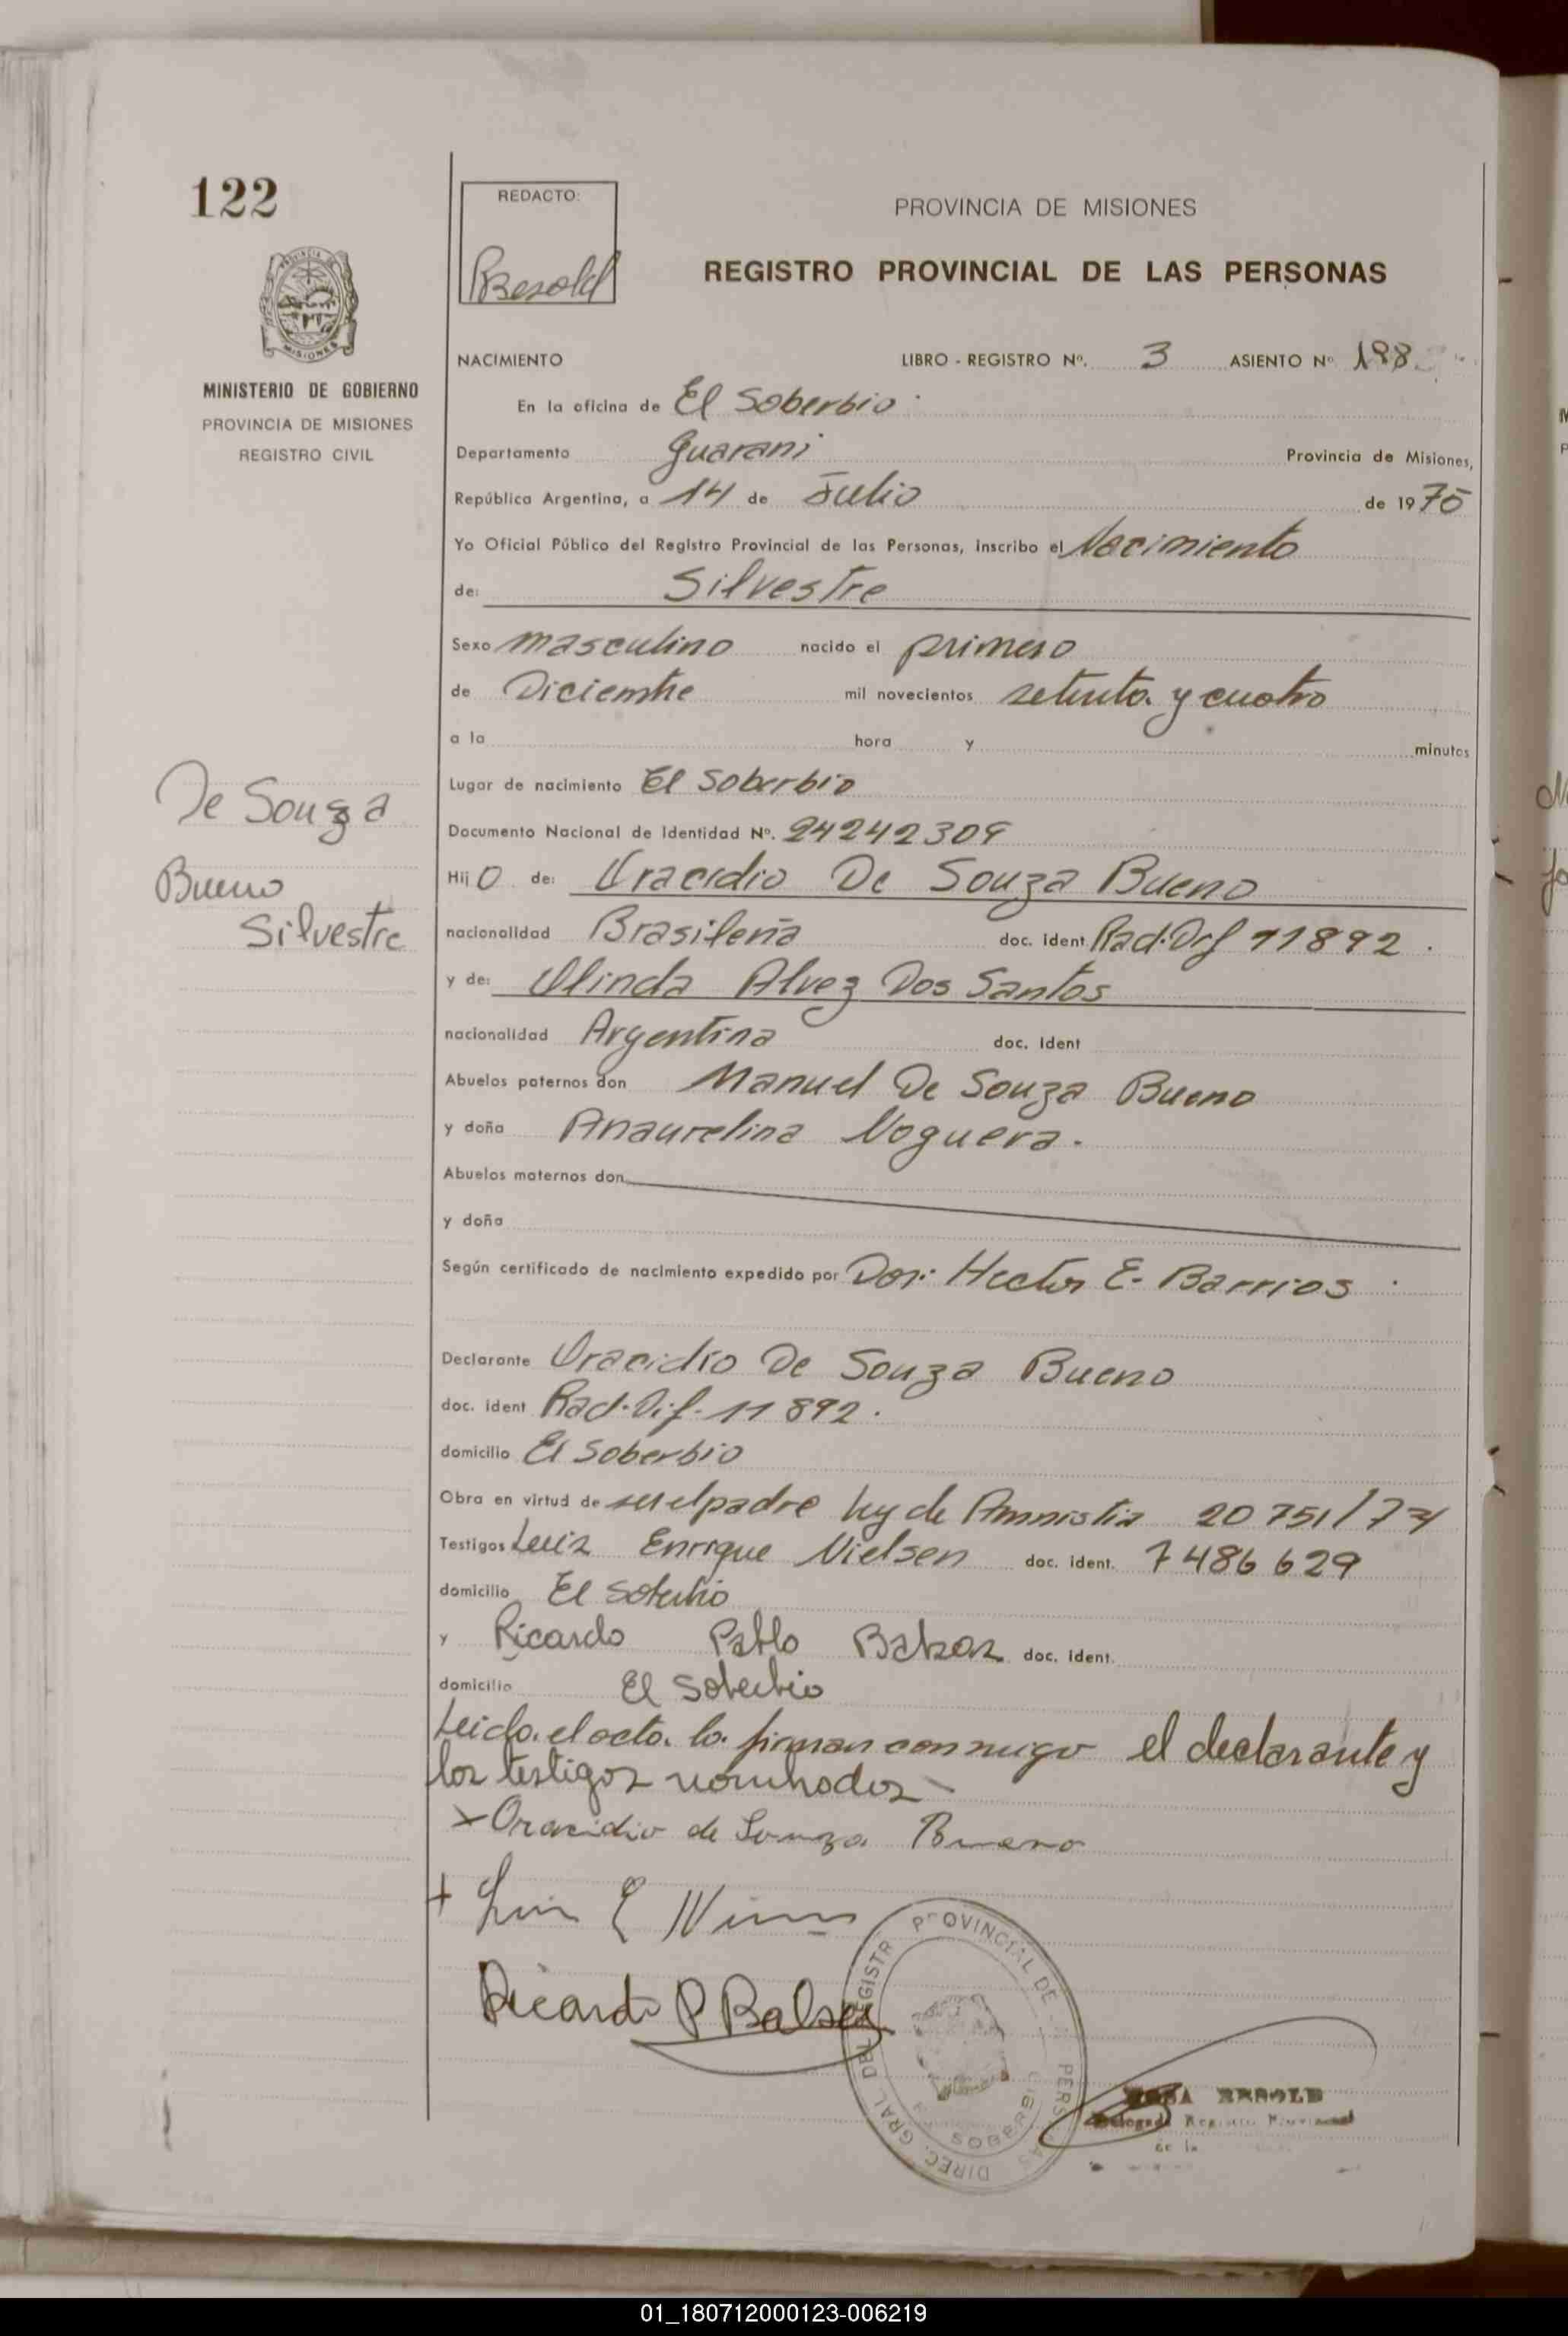 122
REDACTO:
PROVINCIA DE MISIONES
REGISTRO PROVINCIAL DE LAS PERSONAS
MISIONES
MINISTERIO DE GOBIERNO
PROVINCIA DE MISIONES
REGISTRO CIVIL
NACIMIENTO LIBRO - REGISTRO Nº. 3 ASIENTO Nº 188
En la oficina de El Soberbio
Departamento Guarani Provincia de Misiones,
República Argentina, a 14 de Julio de 1975
Yo Oficial Público del Registro Provincial de las Personas, inscribo el Nacimiento
de: Silvestre
Sexo masculino nacido el primero
de Diciembre mil novecientos setenta y cuatro
a la hora y minutos
Lugar de nacimiento El Soberbio
De Souza
Bueno
Silvestre
Documento Nacional de Identidad Nº. 24242309
Hijo de: Oracidio De Souza Bueno
nacionalidad Brasileña doc. ident. Rad. Dif 11892.
y de: Olinda Alvez Dos Santos
nacionalidad Argentina doc. ident
Abuelos paternos don Manuel De Souza Bueno
y doña Anaurelina Noguera.
Abuelos maternos don
y doña
Según certificado de nacimiento expedido por Don: Hector E. Barrios
Declarante Oracidio De Souza Bueno
doc. ident Rad. Dif. 11892.
domicilio El Soberbio
Obra en virtud de ser el padre Ley de Amnistia 20751/74
Testigos Luis Enrique Nielsen doc. ident. 7486629
domicilio El Soberbio
y Ricardo Pablo doc. ident.
domicilio El Soberbio
Leida el acta la firman conmigo el declarante y
los testigos nombrados
Oracidio de Souza Bueno
Luis E
Ricardo P
DIREC. GRAL DEL REGISTR PROVINCIAL DE PERS AS
SOBERBIO
01_180712000123-006219